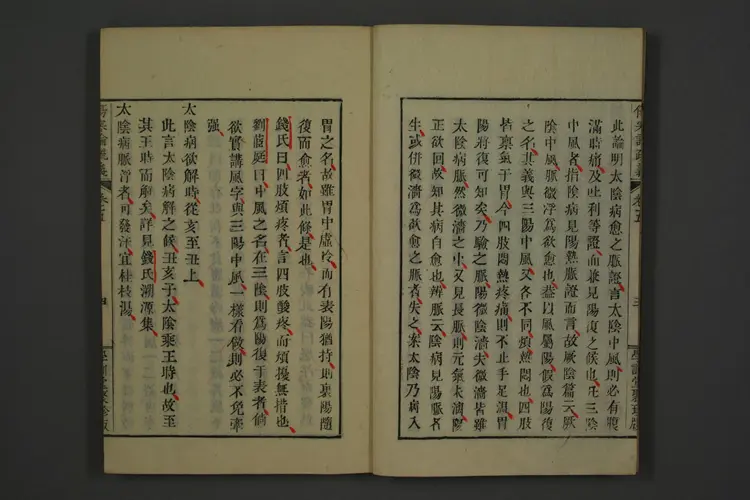 此論明太陰病愈之脈證言太陰中風則必有腹
滿時痛及吐利等證而兼見陽復之候也凡三陰
中風者指陰病見陽熱脈證而言故厥陰篇云厥
陰中風脈微浮為欲愈也蓋以風屬陽假為陽復
之名其義與三陽中風又各不同煩熱悶也四肢
皆稟氣于胃今四肢悶熱疼痛則不止手足溫胃
陽將復可知矣乃驗之脈陽微陰濇夫微濇皆雖
太陰病脈然微濇之中又見長脈則元氣未漓陰
正欲回故知其病自愈也辨脈云陰病見陽脈者
生或併微濇為欲愈之脈者失之矣太陰乃病入
胃之名故雖胃中虛冷而有表陽猶持則裏陽隨
復而愈者如此條是也
錢氏曰四肢煩疼者言四肢酸疼而煩擾無措也
劉茝庭曰中風之名在三陰則為陽復于表者倘
欲實講風字與三陽中風一樣看做則必不免牽
強
太陰病欲解時從亥至丑上
此言太陰病解之候丑亥子太陰乘王時也故至
其王時而解矣詳見錢氏溯源集
太陰病脈浮者可發汗宜桂枝湯
傷寒論疏義
卷之五
三
傷寒論疏義
卷之五
四